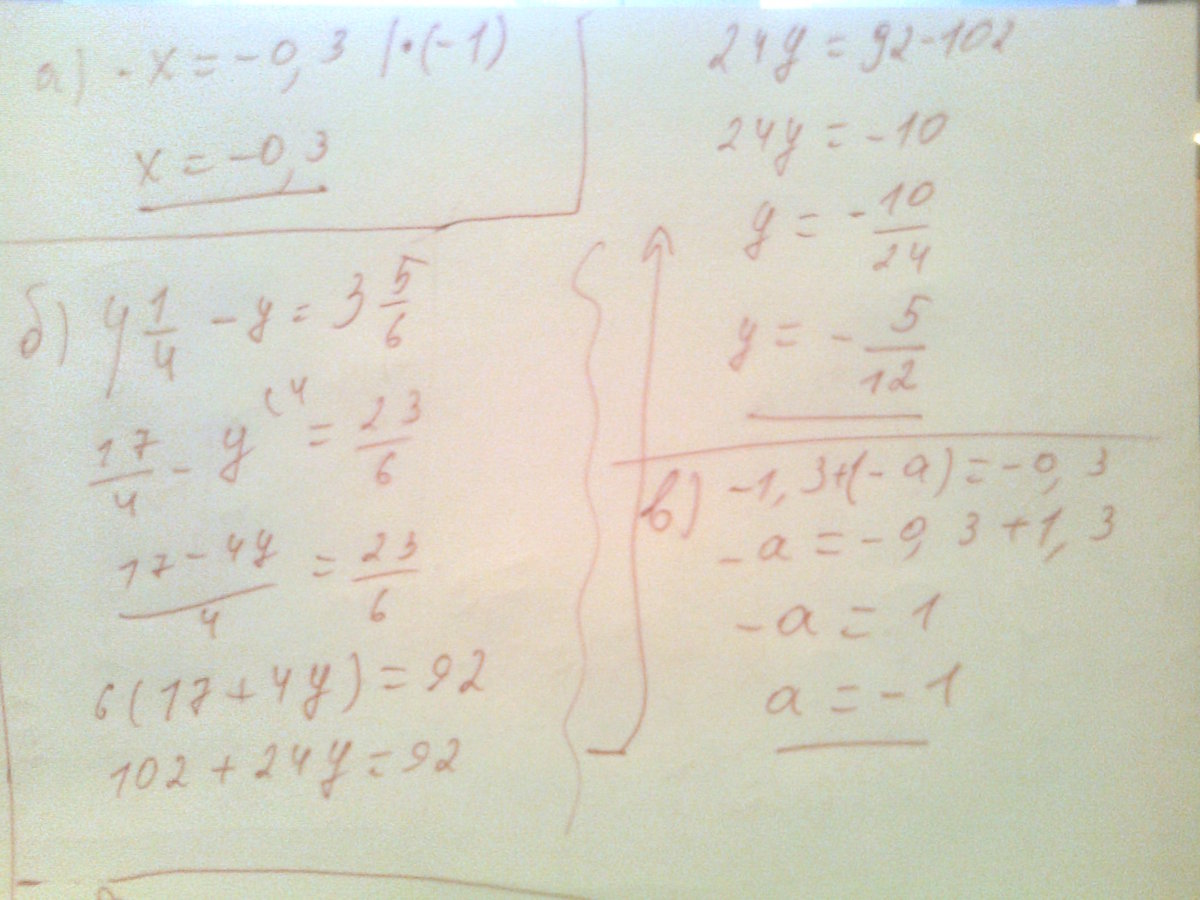 а) - x = -0,3 |·(-1)
x = -0,3
б) 4 1/4 - y = 3 5/6
17/4 - y (4 = 23/6
17 - 4y / 4 = 23/6
6(17 + 4y) = 92
102 + 24y = 92
24y = 92 - 102
24y = -10
y = - 10/24
y = - 5/12
в) -1,3+(-a) = -0,3
-a = -0,3 + 1,3
-a = 1
a = -1